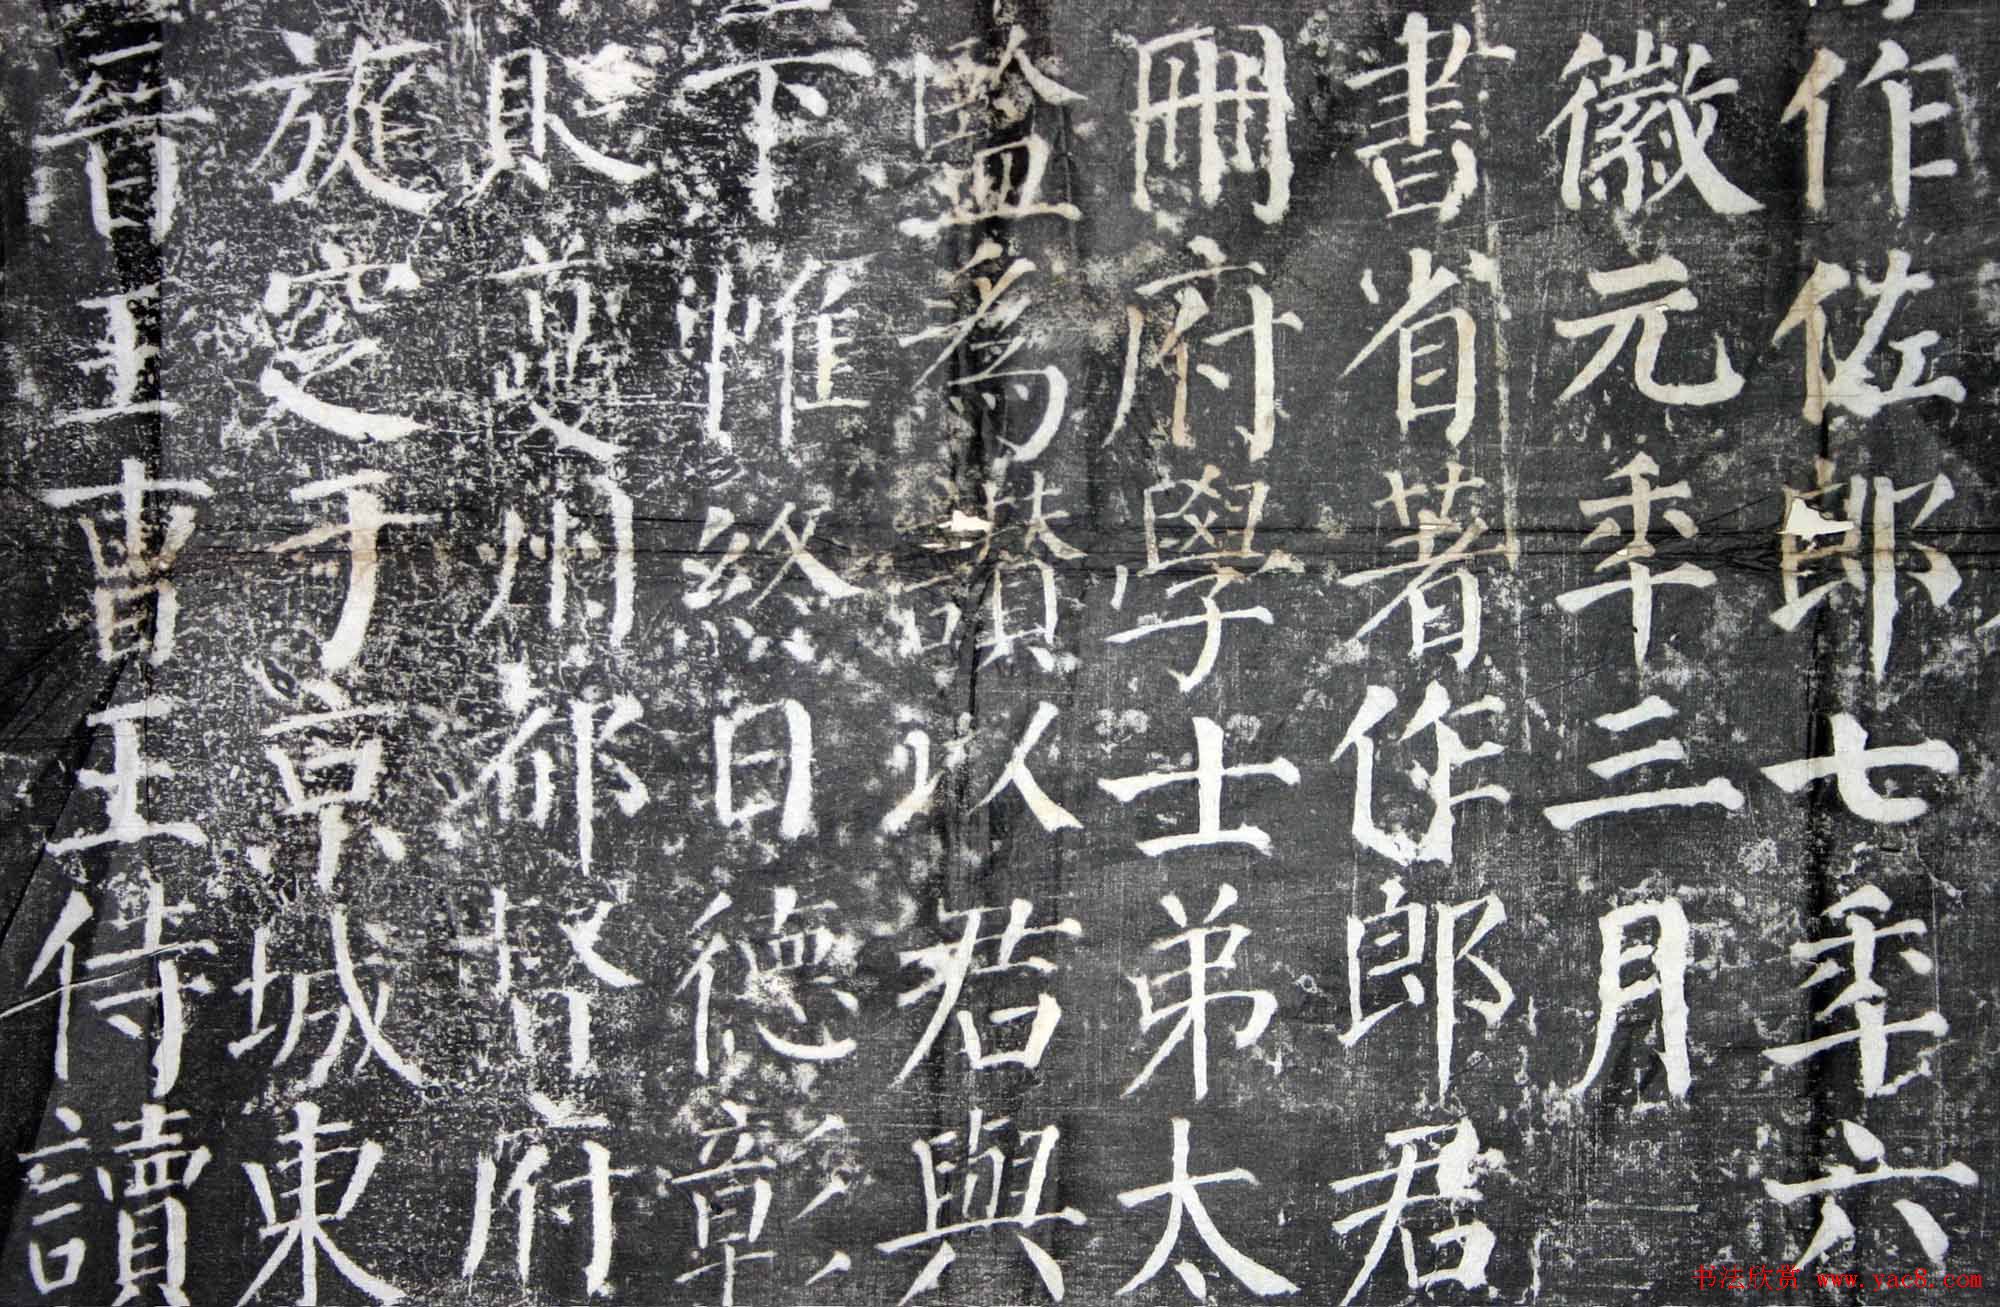 作佐郎七年六
徽元年三月
書省著作郎君
冊府學士弟太
監爲讚以君與
下帷終日德彰
則夔州都督府
旋窆于京城東
晉王曹王侍讀
书法欣赏 www.yac8.com